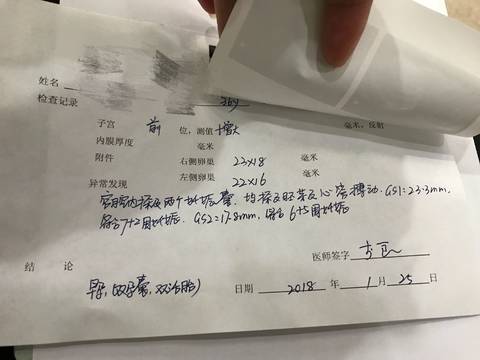 姓名
检查记录 36y
子宫 前 位，测值 增大 毫米，反射
内膜厚度 毫米
附件 右侧卵巢 23×18 毫米
左侧卵巢 22×16 毫米
异常发现
宫腔内探及两个妊娠囊，均探及胚芽及心管搏动，GS1=23.3mm，
符合7+2周妊娠，GS2=17.8mm，符合6+5周妊娠
医师签字
结论
早孕，(双孕囊，双活胎)
日期 2018 年 1 月 25 日